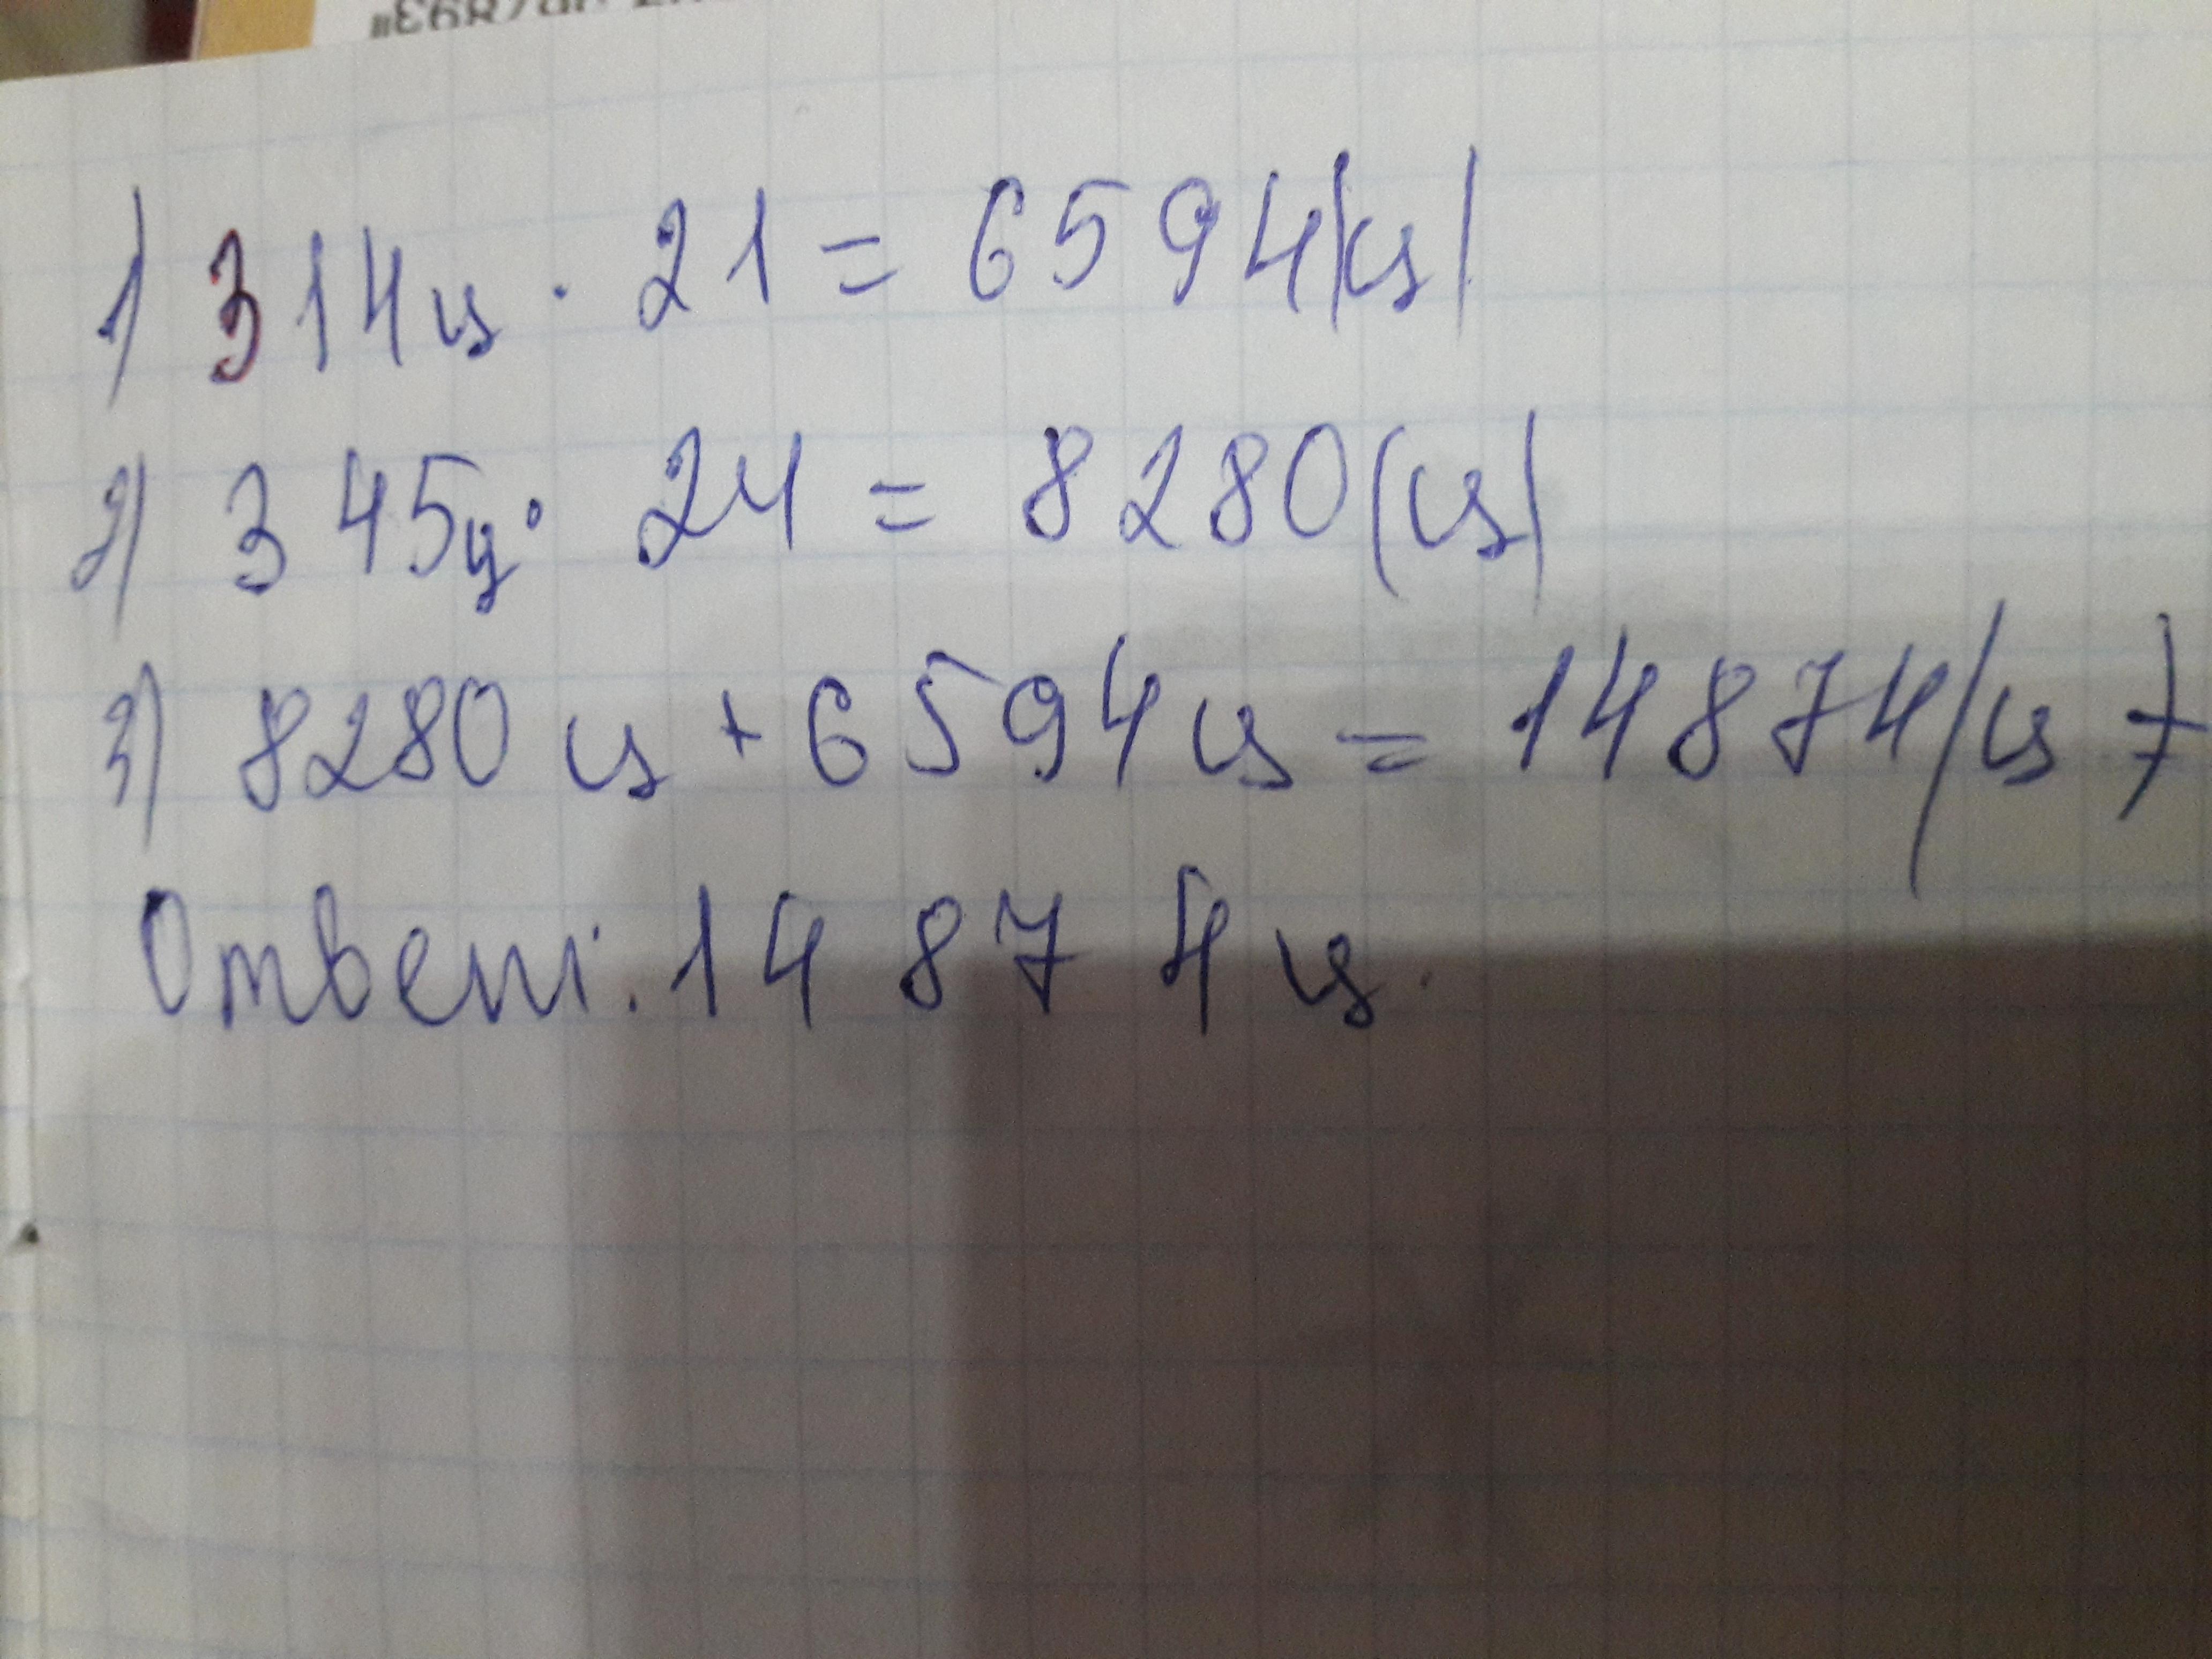 1) 314ц · 21 = 6594(ц)
2) 345ц · 24 = 8280(ц)
3) 8280 ц + 6594 ц = 14874(ц)
Ответ. 14874 ц.